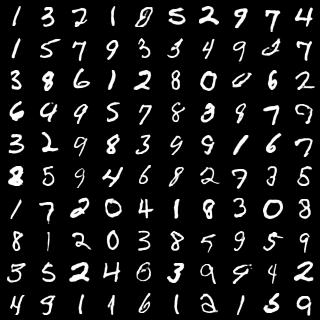 1 3 2 1 8 5 2 9 7 4
1 5 7 9 3 3 4 9 2 7
3 8 6 1 2 8 0 0 6 2
6 9 9 5 7 8 8 9 7 9
3 2 9 8 3 9 9 1 6 7
8 5 9 4 6 8 2 7 3 5
1 7 2 0 4 1 8 3 0 8
8 1 2 0 3 8 5 9 5 9
3 5 2 4 0 3 9 9 4 2
4 9 1 1 6 1 2 1 5 9